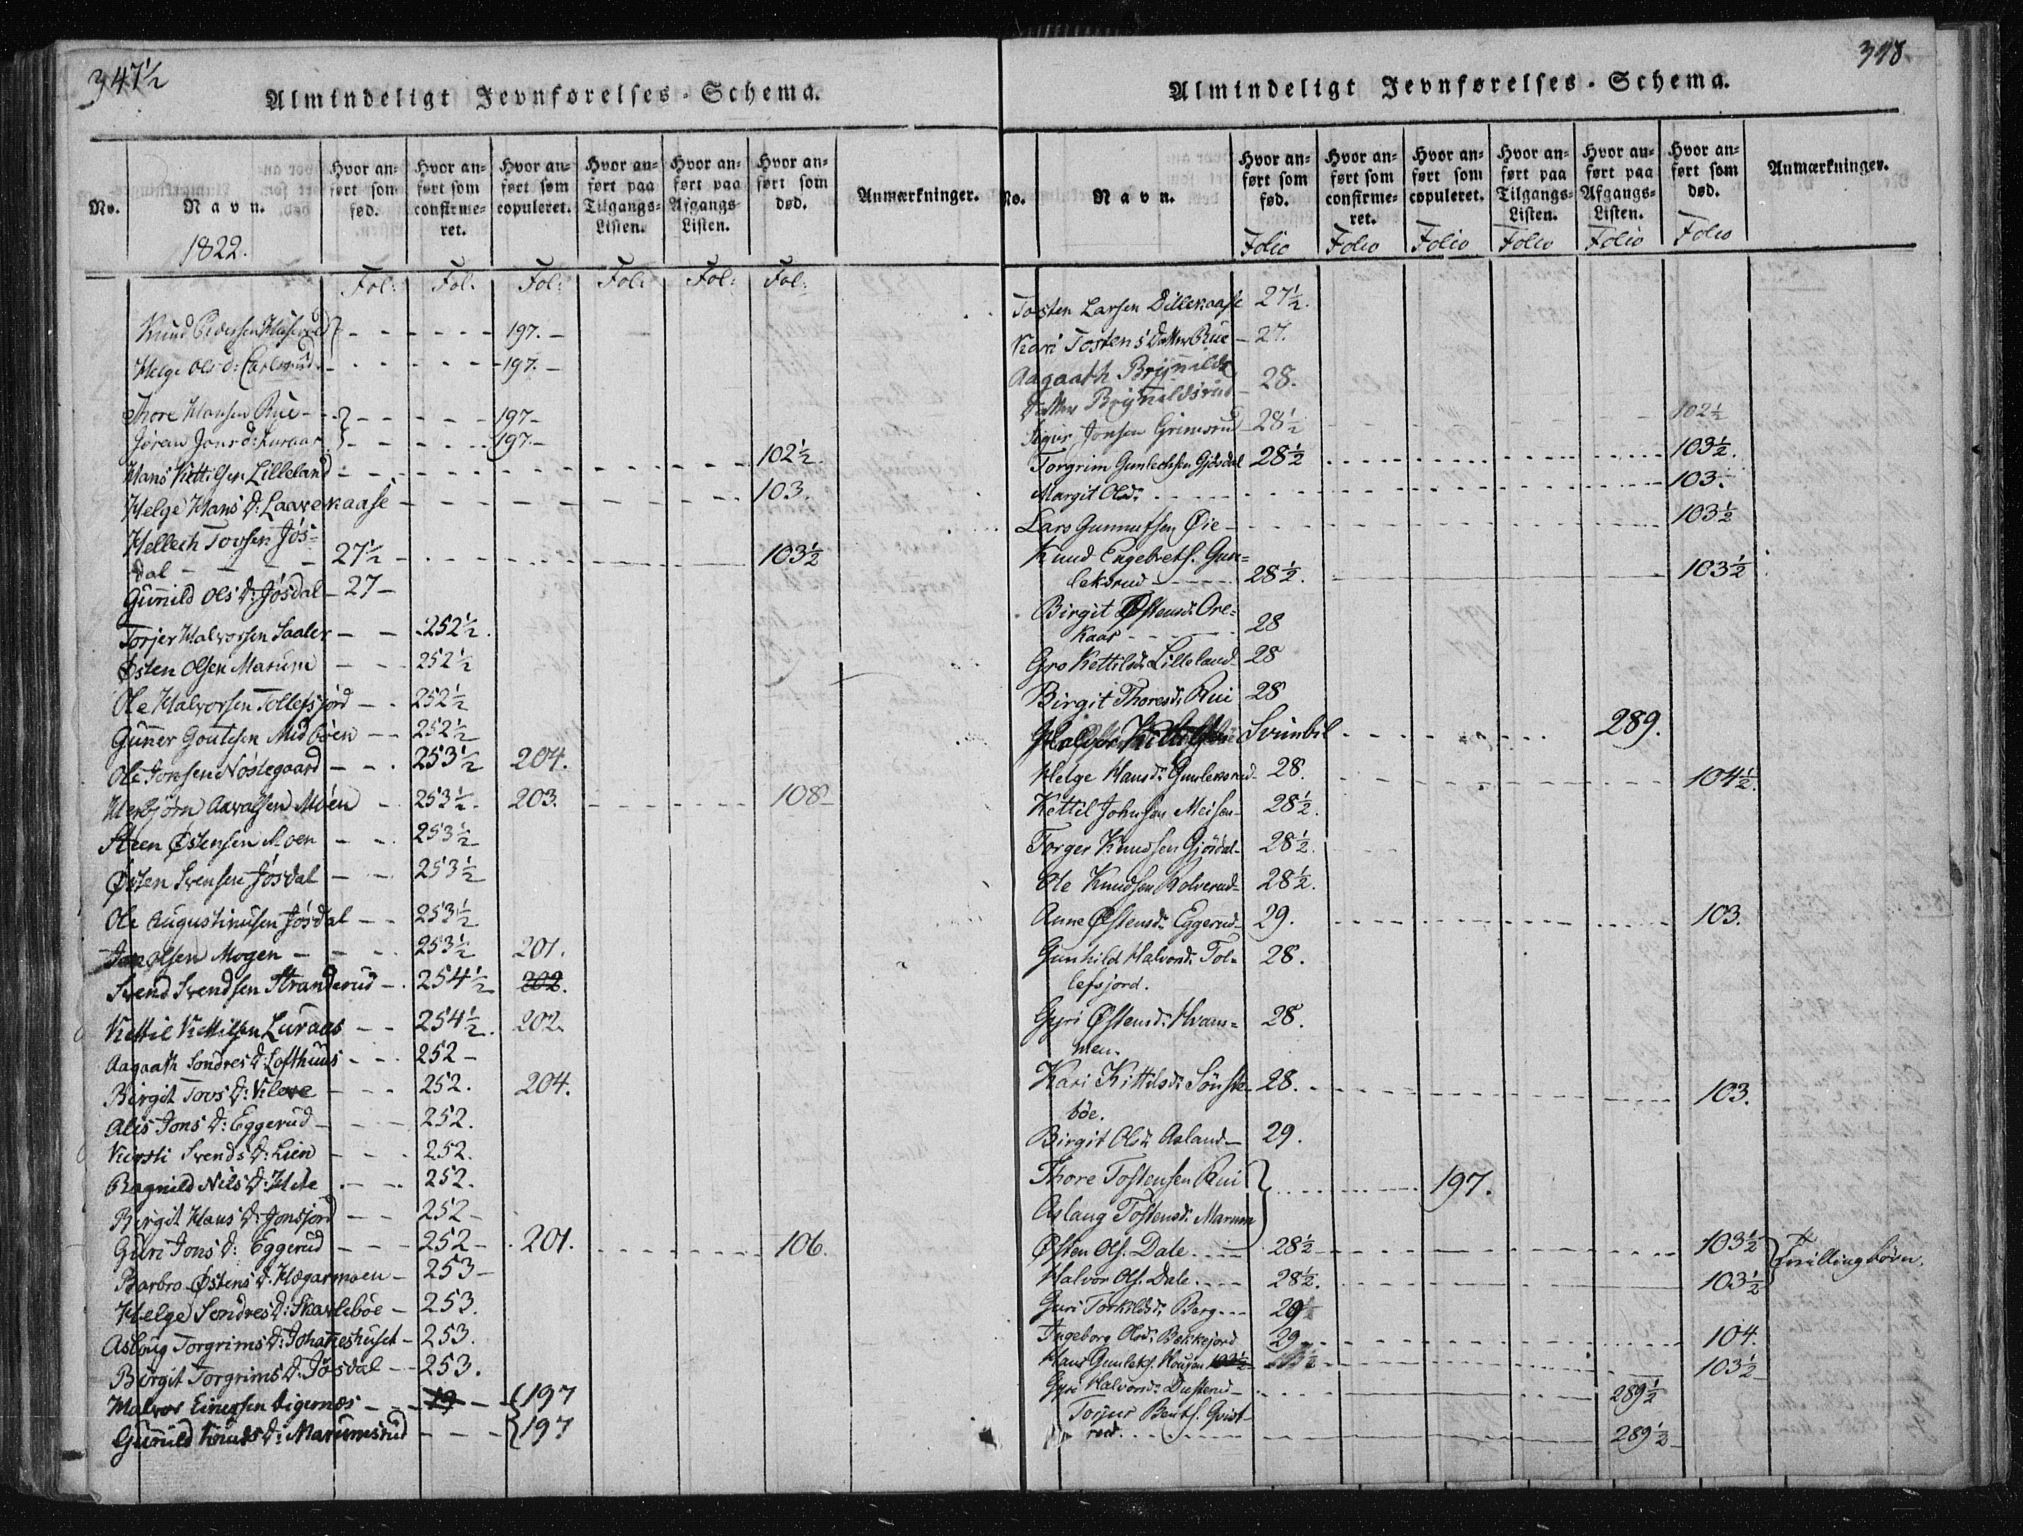 347½
Almindeligt Jevnførelses-Schema.
No.
Navn.
1822.
Hvor anført som fød.
Hvor anført som confirmeret.
Hvor anført som copuleret.
Hvor anført paa Tilgangs-Listen.
Hvor anført paa Afgangs-Listen.
Hvor anført som død.
Anmærkninger.
Fol: Fol. Fol: Fol: Fol: Fol:
Knud Pedersen } - - - 197. -
Helge Ols d: Carlsrud - - - 197. -
Thore Hansen Rue - } - - - 197 -
Jøran Jons d: Luraas } - - - 197. -
Hans Kettilsen Lilleland - - - 102½.
Helge Hans D: Laavekaase - - - 103.
Hellech Tovsen Jøs=
dal - - - 27½ - - - 103½
Gunild Ols D: Jøsdal - 27 -
Torjer Halvorsen Saaler - - 252½.
Østen Olsen Marum - - 252½
Ole Halvorsen Tollefsjord - - 252½
Guner Goutesen Midbøen - - 252½
Ole Jonsen Nostegaard - - 253½ 204.
Herbjørn Aavalsen Moen - 253½. 203. - - - 108 -
Steen Østensen Moen - - 253½
Østen Svensen Jøsdal - - 253½
Ole Augustinusen Jøsdal - - 253½
Jon Olsen Mogen - - - 253½ 201.
Svend Svendsen Stranderud - 254½ 202.
Kettil Kettilsen Luraas - - 254½. 202.
Aagaath Sondres D: Lofthuus - - 252 -
Birgit Tovs D: Kleve - - - 252. 204.
Alis Jons D: Eggerud - - - 252.
Kirsti Svends D: Lien - - - 252.
Ragnild Nils D: Hvte - - 252.
Birgit Hans D: Jonsjord - - 252 -
Guri Jons D: Eggerud - - - 252 - 201. - - - 106.
Barbro Østens D: Hægarmoen - 253 -
Helge Sondres D: Skarlebøe - 253.
Aslaug Torgrims D: Johaneshuset - 253.
Birgit Torgrims D: Jøsdal - - 253.
Halvor Einersen Ligernes - - 19 - { 197
Gunild Knuds D: Marumsrud - - - { 197
348.
Almindeligt Jevnførelses-Schema.
No.
Navn.
Hvor anført som fød.
Hvor anført som confirmeret.
Hvor anført som copuleret.
Hvor anført paa Tilgangs-Listen.
Hvor anført paa Afgangs-Listen.
Hvor anført som død.
Anmærkninger.
Folio Folio Folio Folio Folio Folio
Tosten Larsen Dillekaase 27½.
Kari Tostens Datter Rue - 27.
Aagaath Brynilds
Datter Brynildsrud - 28.
Sigur Jonsen Grimsrud - 28½ - - - 102½
Torgrim Gunlechsen Gjøsdal 28½ - - - 103½.
Margit Olsd: - - - 103.
Lars Gunnufsen Øie - - - 103½
Knud Engebrets. Gun=
leksrud - - - 28½. - - - 103½
Birgit Østensd: Ore=
kaas - - - 28
Gro Kettilsd: Lilleland 28
Birgit Thoresd: Rui 28
Svimbil - - - 289.
Helge Hansd: Gunleksrud - 28. - - - 104½.
Kettil Johnsen Meisen - 28½.
Torger Knudsen Gjøsdal - 28½.
Ole Knudsen Rolverud - 28½.
Anne Østensd: Eggerud - 29. - - - 103.
Gunhild Halvorsd: Tol=
lefsjord. 28.
Gyri Østensd: Hvam=
men. 28.
Kari Kittilsd: Sønste=
bøe. 28. - - - 103.
Birgit Olsd: Aasland - 29.
Thore Tostensen Rui } - - - 197.
Aslaug Tostensd: Marum }
Østen Ols. Dale - - - 28½ - - - 103½ } Tvillingbørn.
Halvor Ols. Dale - - - 28½. - - - 103½ }
Guri Torkildsd: Berg - - - 29
Ingeborg Olsd: Bekkejord 29 - - - 104.
Hans Gunleks. Haugen 103½ - - - 103½
Gyri Halvorsd: Dusterud - - - 289½
Torjus Bents. Qvist=
rud. - - - 289½